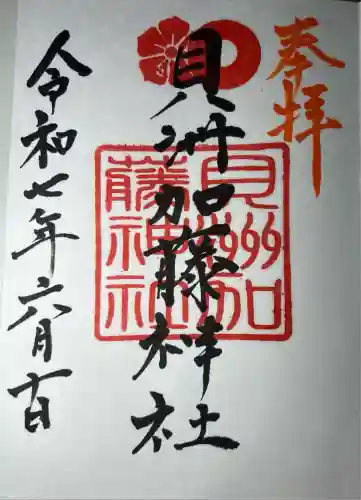 奉拝
貝洲加藤神社
貝洲加
藤神社
令和七年六月十日